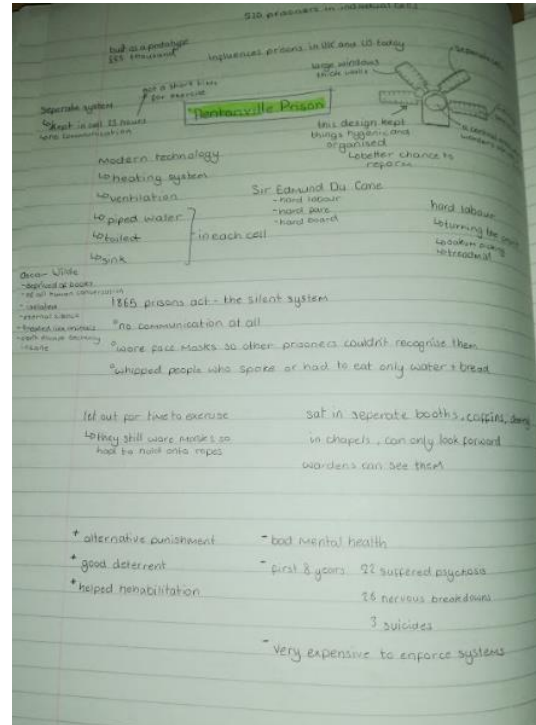 520 prisoners in individual cells
built as a prototype
£85 thousand
Influences prisons in UK and US today
large windows
thick walls
separate
got a short time
for exercise
Seperate system
↳kept in cell 23 hours
↳no communication
"Pentonville Prison"
a central
this design kept
things hygenic and
organised
↳better chance to
reform
Modern technology
↳heating system
↳ventilation
↳piped water
↳toilet
↳sink
in each cell
Sir Edmund Du Cane
- hard labour
- hard fare
- hard board
hard labour
↳turning the
↳oakum picking
↳treadmill
Oscar Wilde
- deprived of books
- of all human conversation
- isolated
- eternal silence
- treated like animals
insane
1865 prisons act - the silent system
°no communication at all
°wore face masks so other prisoners couldn't recognise them
°whipped people who spoke or had to eat only water + bread
let out for time to exercise
↳they still wore masks so
had to hold onto ropes
sat in seperate booths, coffins,
in chapels, can only look forward
wardens can see them
+ alternative punishment
+ good deterrent
+ helped rehabilitation
- bad mental health
- first 8 years 22 suffered psychosis
26 nervous breakdowns
3 suicides
- very expensive to enforce systems